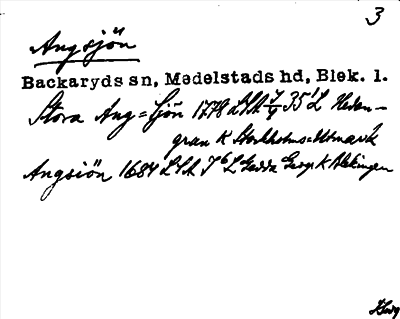 3
Angsjön
Backaryds sn, Medelstads hd, Blek. l.
Stora Ang=Sjön 1778 LSA 35 L Heden-
gran K Stockholms Utmark
Angsiön 1684 LSA L Gedda Geogr. K Blekingen